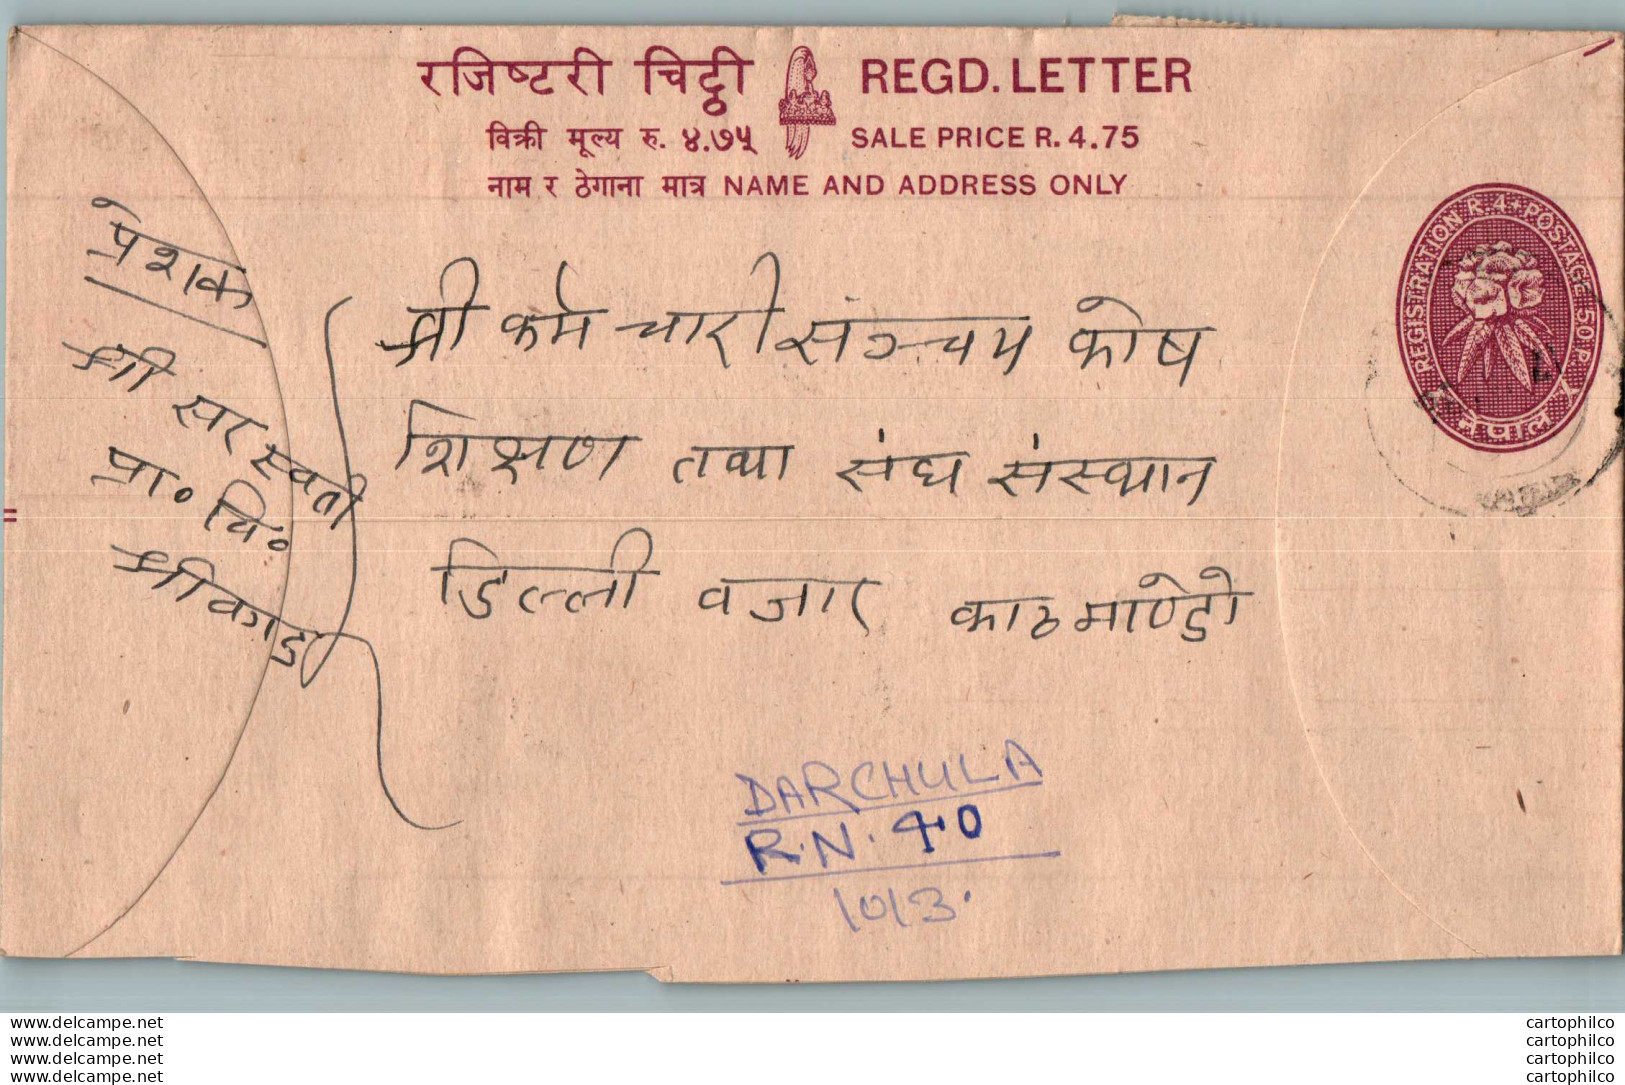 रजिष्टरी चिट्ठी REGD. LETTER
विक्री मूल्य रु. ४.७५ SALE PRICE R. 4.75
नाम र ठेगाना मात्र NAME AND ADDRESS ONLY
REGISTRATION R. 4 + POSTAGE 50 P.
नेपाल
प्रेशक
श्री सरस्वती
प्रा० वि०
श्रीकाड
श्री कर्मचारी संञ्चय कोष
शिक्षण तथा संघ संस्थान
डिल्ली वजार काठमाण्डो
DARCHULA
R.N. 40
10/3.
www.delcampe.net
www.delcampe.net
www.delcampe.net
www.delcampe.net
cartophilco
cartophilco
cartophilco
cartophilco